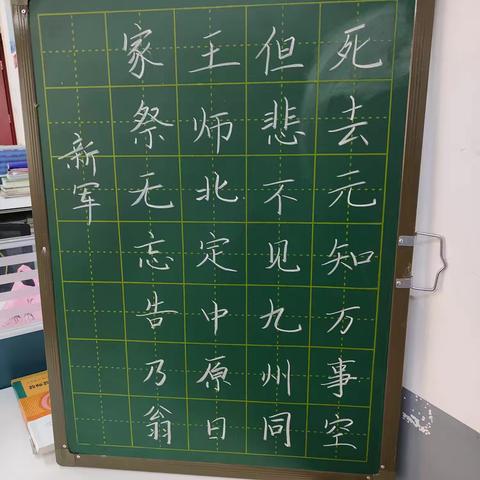 死去元知万事空
但悲不见九州同
王师北定中原日
家祭无忘告乃翁
新军